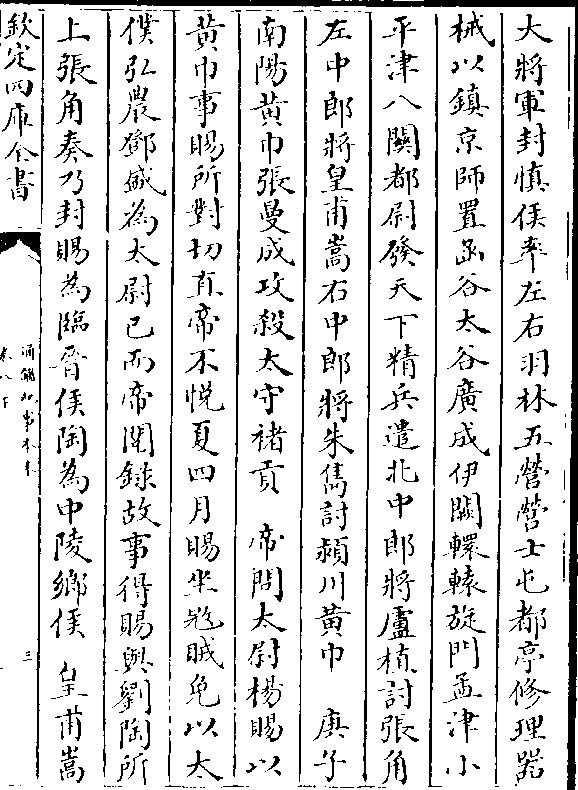 大將軍封慎侯率左右羽林五營營士屯都亭修理器
械以鎮京師置函谷太谷廣成伊闕轘轅旋門孟津小
平津八關都尉發天下精兵遣北中郎將盧植討張角
左中郎將皇甫嵩右中郎將朱儁討潁川黄巾　庚子
南陽黄巾張曼成攻殺太守禇貢　帝問太尉楊賜以
黄巾事賜所對切直帝不悦夏四月賜坐冦賊免以太
僕弘農鄧盛為太尉已而帝閱錄故事得賜與劉陶所
上張角奏乃封賜為臨晉侯陶為中陵鄉侯　皇甫嵩
欽定四庫全書
通鑑紀事本末
卷八下
三